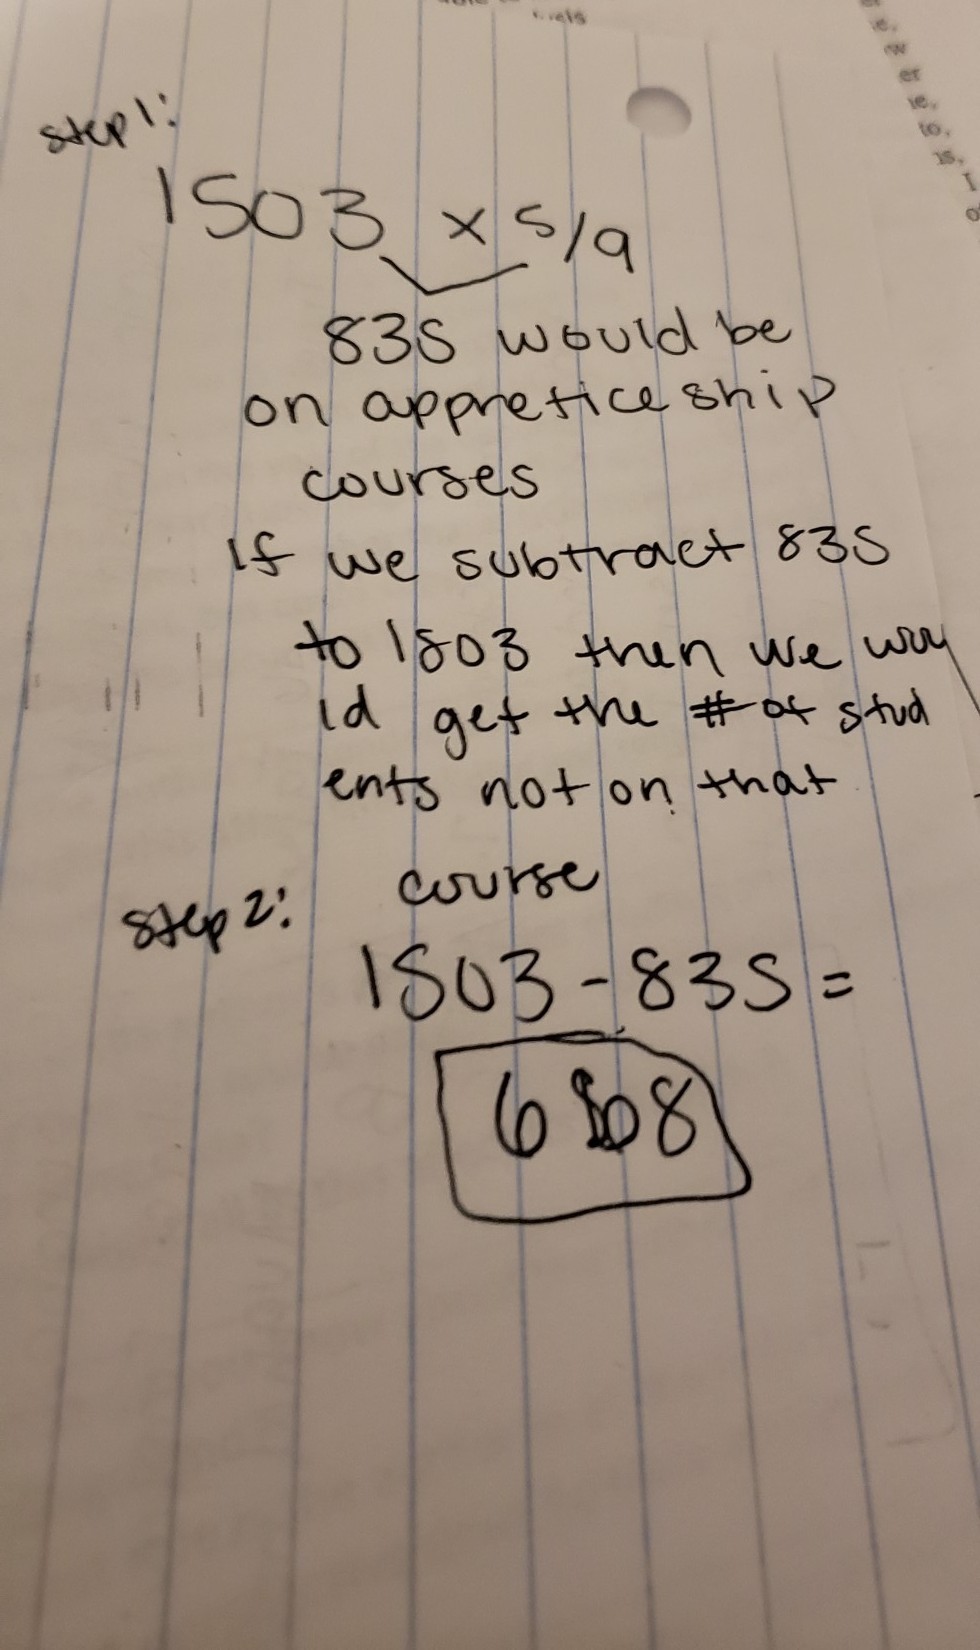 step 1:
1503 x 5/9
835 would be
on appreticeship
courses
If we subtract 835
to 1503 then we wou
ld get the # of stud
ents not on that
course
step 2:
1503 - 835 =
668
er
ie,
to,
is,
I